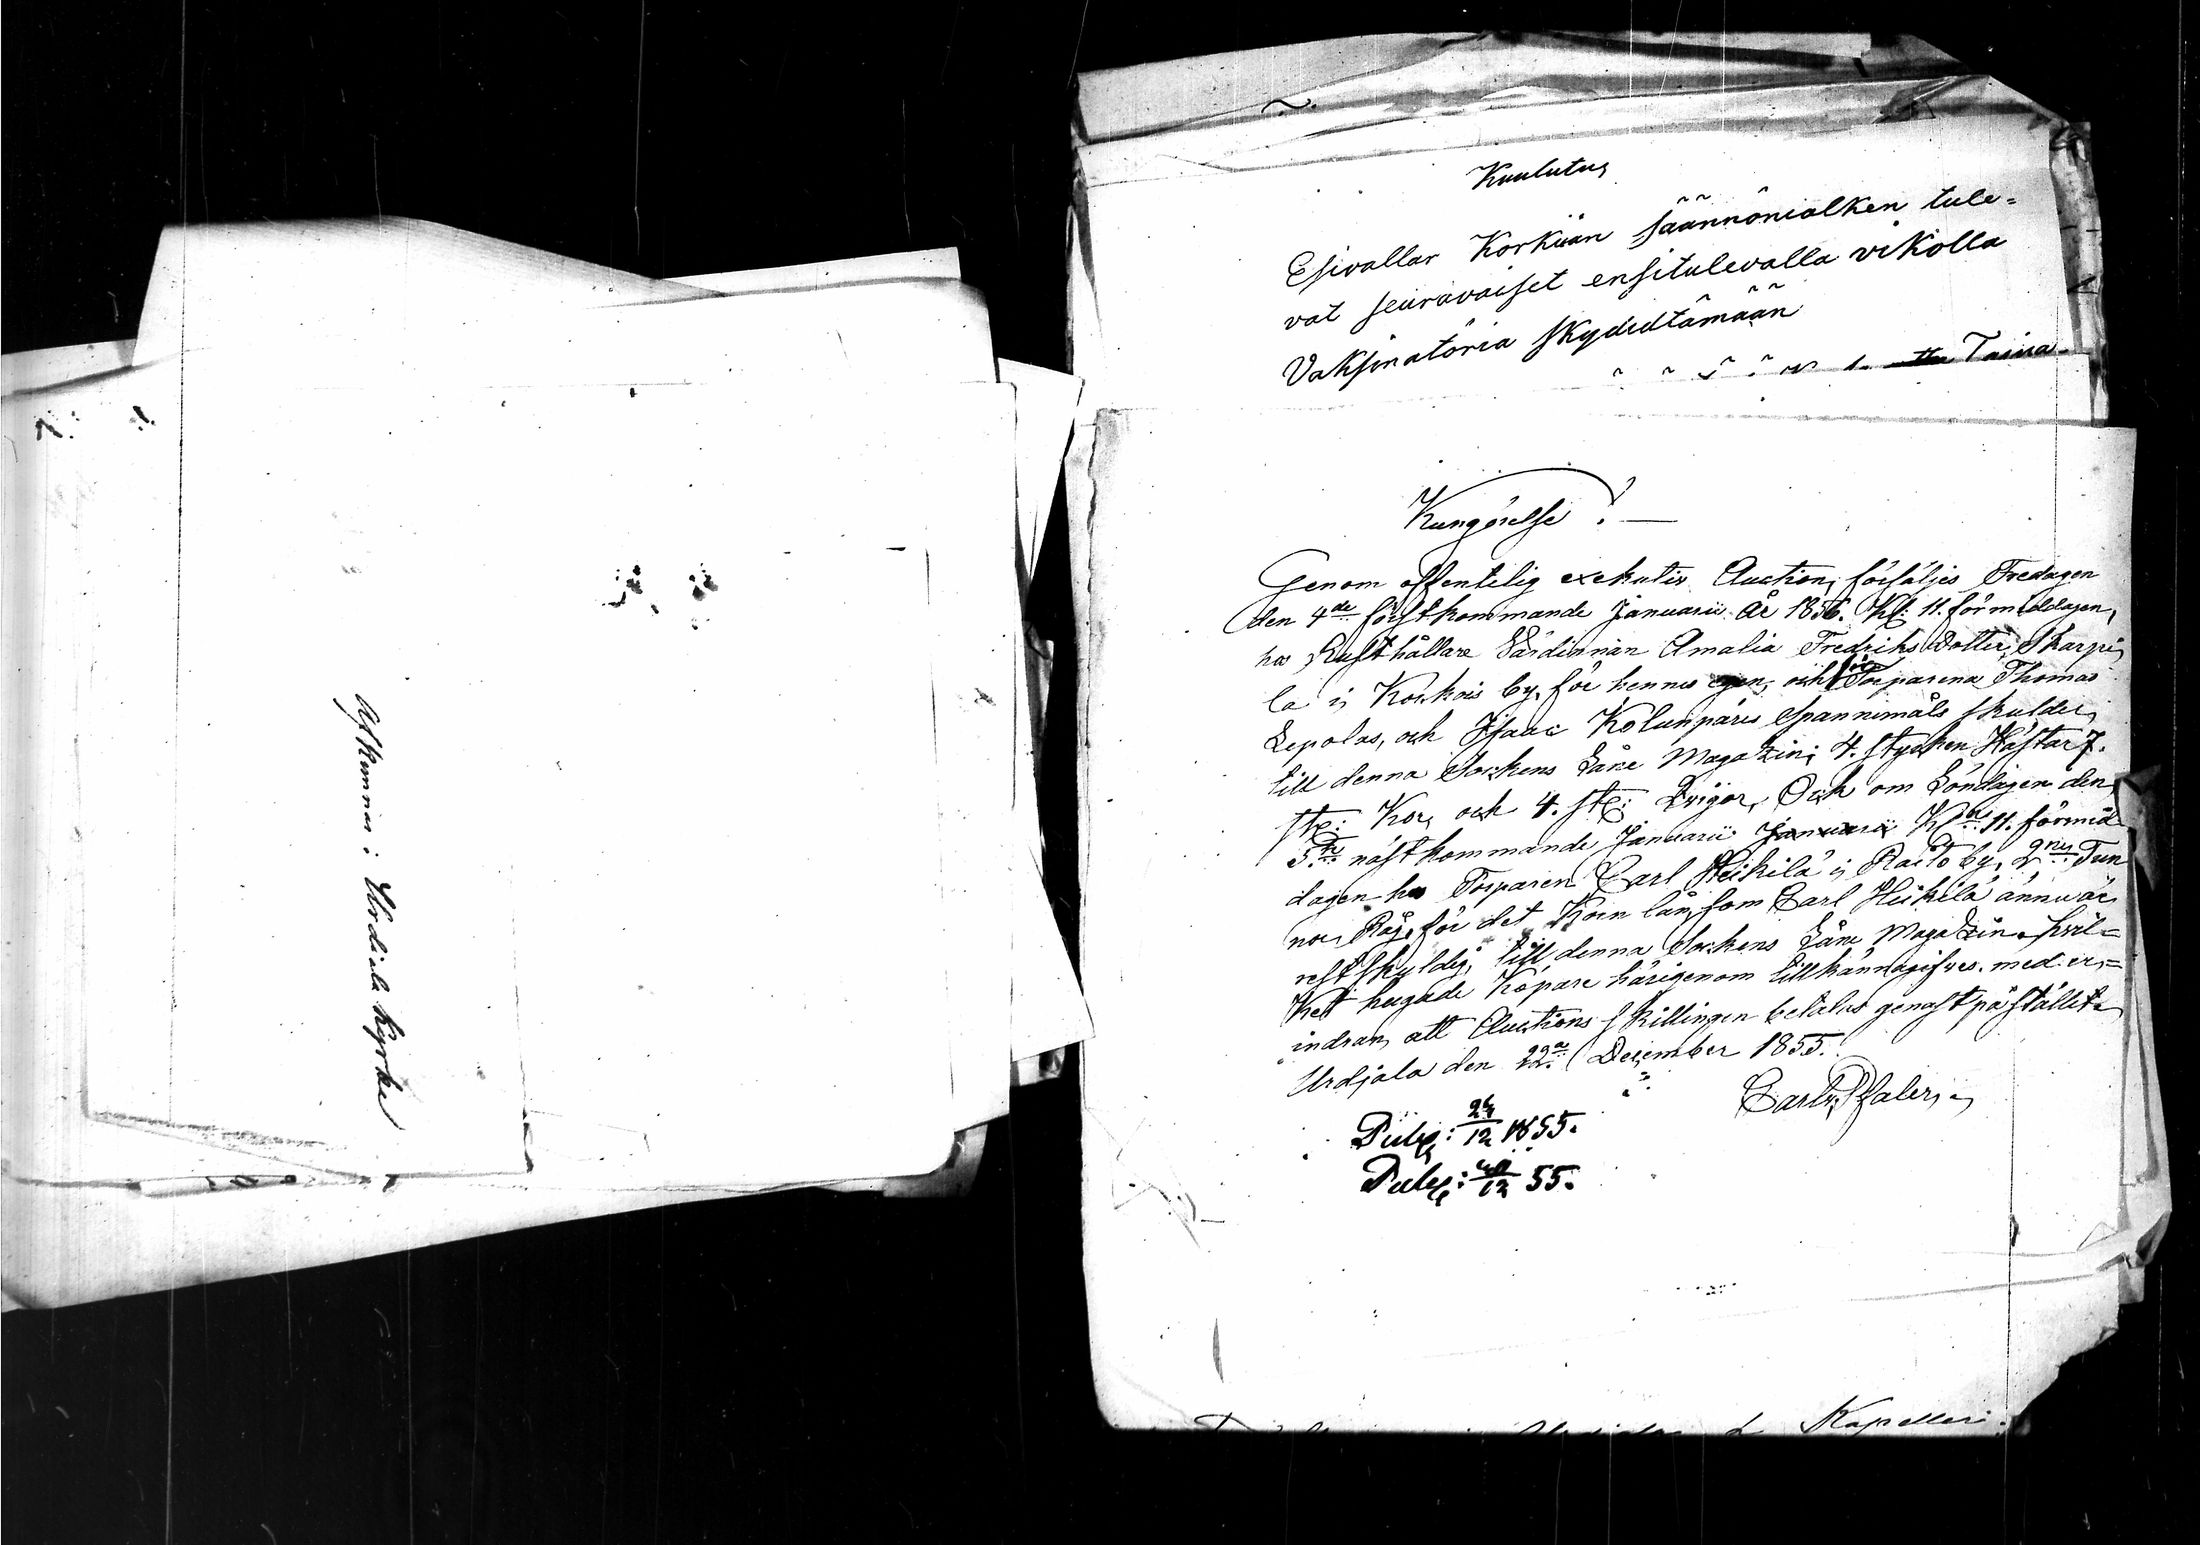 Afkunnas i Urdiala kyrka
Kuulutus
Esivallar Korkiän säännönialken tule=
vat seuravaiset ensitulevalla vikolla
Vaksinatöria skydidtämään
Taina-
Kungörelse!
Genom offentelig exekutiv Auction, försäljes Fredagen
den 4de förstkommande Januarii År 1856. Kl: 11. förmiddagen,
hos Rusthållare Värdinnan Amalia Fredriks Dotter, Skarpi
la i, Korkois by, för hennes egen, och för Torparena Thomas
Lepolas, och Isaac Kolunpäres Spannimåls skulder,
till denna Sockens Låne Magazin; 4. stycken Hästar 7.
stx: Kor, och 4. stx: Qvigor, Och om Söndagen den
5te nästkommande Januarii Januarii Kl: 11. förmid
dagen hos Torparen Carl Heikilä i, Raito by, 2ne Tun
nor, Råg, för det Korn lån, som Carl Heikilä ännu är
restskyldig, till denna Sockens Låne Magazin. hvil=
ket hugade Köpare härigenom tillkännagifves. med er=
indran, att Auctions skillingen betalas genast på stället.
Urdjala den 22a December 1855.
Carl Pfaler
Publ: 24/12 1855.
Publ: 12 55.
Kapelleri